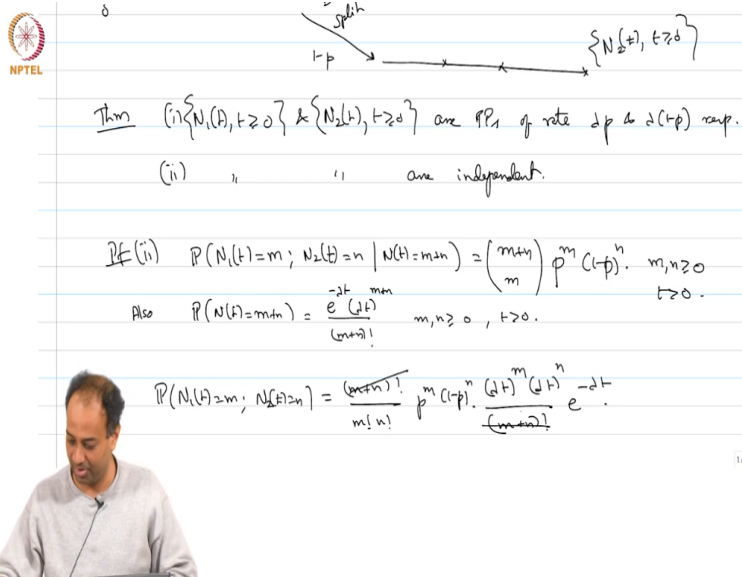 split
1-p
{N₂(t), t≥0}
NPTEL
Thm (i) {N₁(t), t≥0} & {N₂(t), t≥0} are PPs of rate λp & λ(1-p) resp.
(ii) " " are independent.
Pf (ii) P(N₁(t)=m ; N₂(t)=n | N(t)=m+n) = (m+n m) pᵐ (1-p)ⁿ. m,n≥0
t>0.
Also P(N(t)=m+n) = e^{-λt} (λt)^{m+n} / (m+n)! m,n≥0, t>0.
P(N₁(t)=m ; N₂(t)=n) = (m+n)! / m! n! pᵐ (1-p)ⁿ. (λt)ᵐ (λt)ⁿ / (m+n)! e^{-λt}.